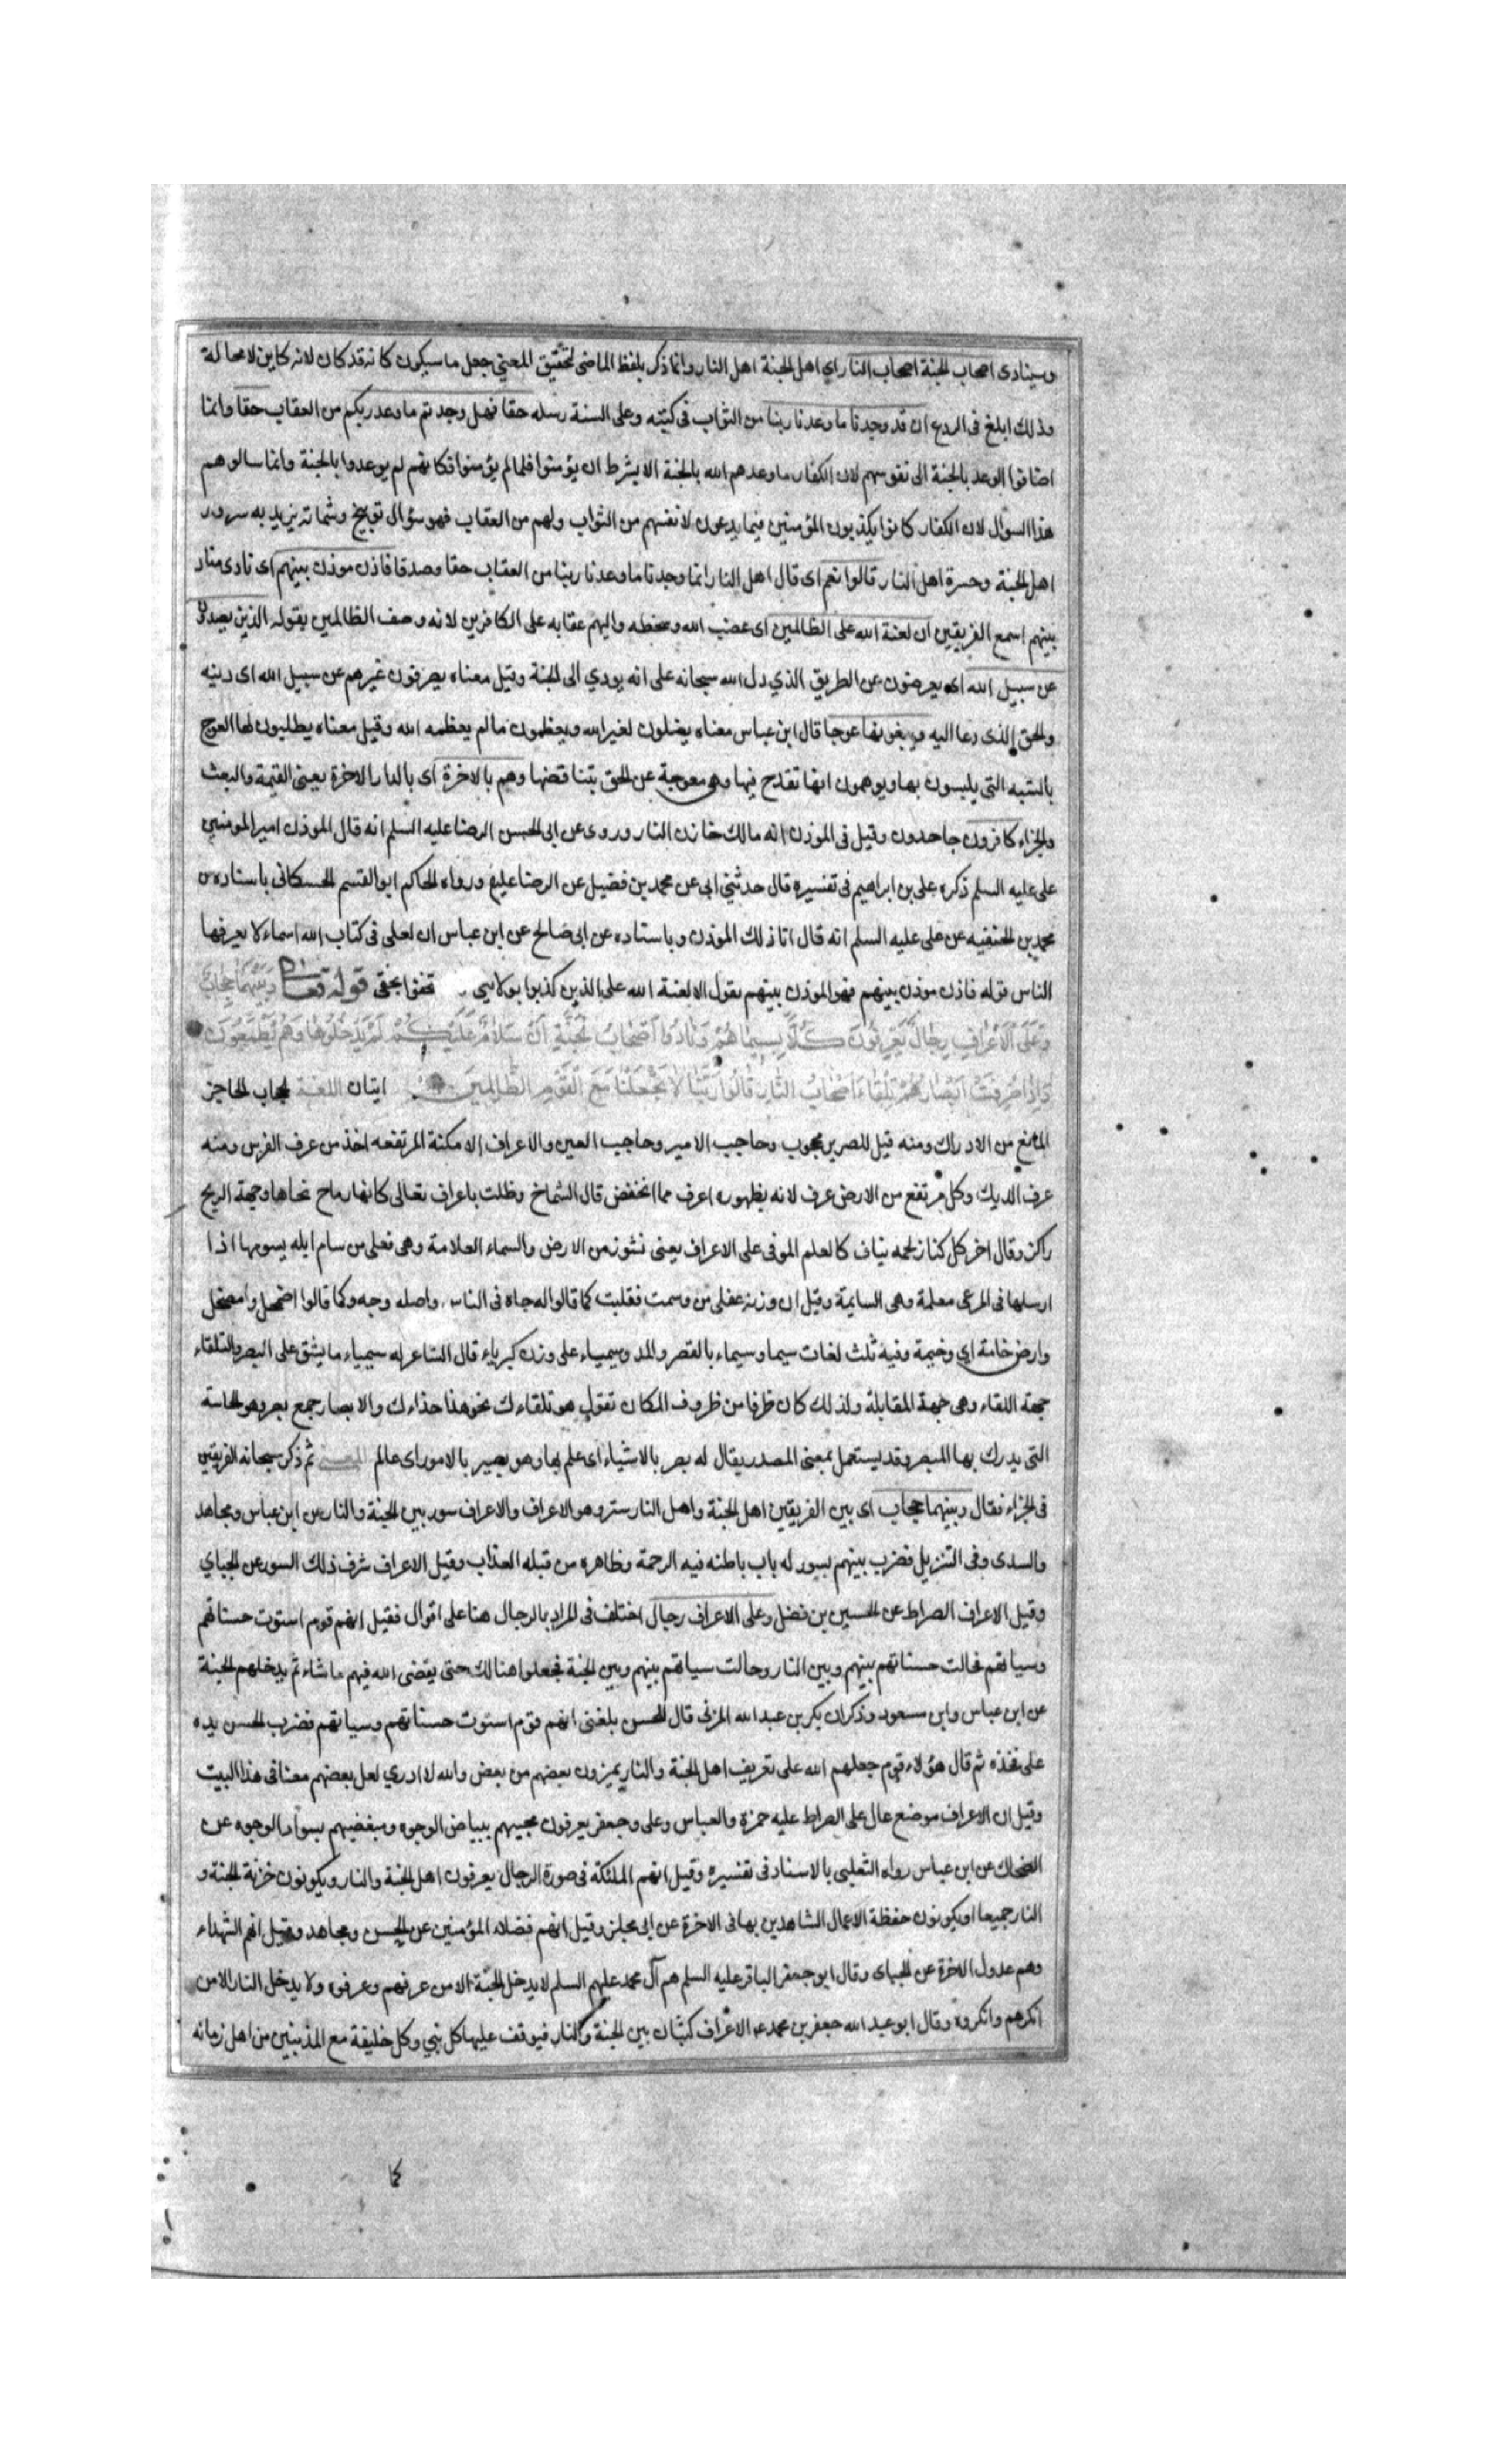 وسينادى اصحاب الجنة اصحاب النار اي اهل الجنة اهل النار وانما ذكر بلفظ الماضى لتحقيق المعنى جعل ما سيكون كانه قد كان لانه كاين لا محالة
وذلك ابلغ فى الردع ان قد وجدنا ما وعدنا ربنا من الثواب فى كتبه وعلى السنة رسله حقا فهل وجدتم ما وعد ربكم من العقاب حقا وانما
اضافوا الوعد بالجنة الى نفوسهم لان الكفار ما وعدهم الله بالجنة الا بشرط ان يؤمنوا فلما لم يؤمنوا فكانهم لم يوعدوا بالجنة وانما سالوهم
هذا السوال لان الكفار كانوا يكذبون المؤمنين فيما يدعون لانفسهم من الثواب ولهم من العقاب فهو سؤال توبيخ وشماتة يزيد به سرور
اهل الجنة وحسرة اهل النار قالوا نعم اى قال اهل النار انما وجدنا ما وعدنا ربنا من العقاب حقا وصدقا فاذن موذن بينهم اى نادى مناد
بينهم اسمع الفريقين ان لعنة الله على الظالمين اى غضب الله وسخطه واليهم عقابه على الكافرين لانه وصف الظالمين بقوله الذين يصدون
عن سبيل الله اى يعرضون عن الطريق الذي دل الله سبحانه على انه يودي الى الجنة وقيل معناه يصرفون غيرهم عن سبيل الله اى دينه
والحق الذى دعا اليه ويبغونها عوجا قال ابن عباس معناه يصلون لغير الله ويعظمون ما لم يعظمه الله وقيل معناه يطلبون لها العوج
بالشبه التى يلبسون بها ويوهمون انها تقدح فيها وهى معوجة عن الحق بتناقضها وهم بالاخرة اى بالدار الاخرة يعنى القيمة والبعث
والجزاء كافرون جاحدون وقيل فى الموذن انه مالك خازن النار وروى عن ابى الحسن الرضا عليه السلم انه قال الموذن امير المومنين
على عليه السلم ذكره على بن ابراهيم فى تفسيره قال حدثني ابى عن محمد بن فضيل عن الرضا عليع ورواه الحاكم ابو القسم الحسكانى باسناده عن
محمد بن الحنفيه عن على عليه السلم انه قال انا ذلك الموذن وباسناده عن ابى صالح عن ابن عباس ان لعلى فى كتاب الله اسماء لا يعرفها
الناس قوله فاذن موذن بينهم فهو الموذن بينهم يقول الا لعنة الله على الذين كذبوا بولايتى تخفوا بحقى قوله تعالى وَبَيْنَهُمَا حِجَابٌ
وَعَلَى الْأَعْرَافِ رِجَالٌ يَعْرِفُونَ كُلًّا بِسِيمَاهُمْ وَنَادَوْا أَصْحَابَ الْجَنَّةِ أَنْ سَلَامٌ عَلَيْكُمْ لَمْ يَدْخُلُوهَا وَهُمْ يَطْمَعُونَ
وَإِذَا صُرِفَتْ أَبْصَارُهُمْ تِلْقَاءَ أَصْحَابِ النَّارِ قَالُوا رَبَّنَا لَا تَجْعَلْنَا مَعَ الْقَوْمِ الظَّالِمِينَ ايتان اللغة الحجاب الحاجز
المانع من الادراك ومنه قيل للضرير محجوب وحاجب الامير وحاجب العين والاعراف الامكنة المرتفعه اخذ من عرف الفرس ومنه
عرف الديك وكل مرتفع من الارض عرف لانه بظهوره اعرف مما انخفض قال الشماخ وظلت باعراف تعالى كانها رماح نحاها وجهة الريح
راكز وقال اخر كل كناز لحمه نياف كالعلم الموفى على الاعراف يعنى نشوز من الارض والسماء العلامة وهى فعلى من سام ابله يسومها اذا
ارسلها فى المرعى معلمة وهى السايمة وقيل ان وزنه عفلى من وسمت فقلبت كما قالوا له جاه فى الناس واصله وجه وكما قالوا اضمحل وامضحل
وارض خامة اي وخيمة وفيه ثلث لغات سيما وسيماء بالقصر والمد وسيمياء على وزن كبرياء قال الشاعر له سيمياء ما يشق على البصر والتلقاء
جهة اللقاء وهى جهة المقابلة ولذلك كان ظرفا من ظروف المكان تقول هو تلقاءك نحو هذا حذاءك والابصار جمع بصر وهو الحاسة
التى يدرك بها المبصر وقد يستعمل بمعنى المصدر يقال له بصر بالاشياء اى علم بها وهو بصير بالامور اى عالم المعنى ثم ذكر سبحانه الفريقين
فى الجزاء فقال وبينهما حجاب اى بين الفريقين اهل الجنة واهل النار ستر وهو الاعراف والاعراف سور بين الجنة والنار عن ابن عباس ومجاهد
والسدى وفى التنزيل فضرب بينهم بسور له باب باطنه فيه الرحمة وظاهره من قبله العذاب وقيل الاعراف شرف ذلك السور عن الجباي
وقيل الاعراف الصراط عن الحسين بن فضل وعلى الاعراف رجال اختلف فى المراد بالرجال هنا على اقوال فقيل انهم قوم استوت حسناتهم
وسياتهم فحالت حسناتهم بينهم وبين النار وحالت سياتهم بينهم وبين الجنة فجعلوا هنالك حتى يقضى الله فيهم ما شاء ثم يدخلهم الجنة
عن ابن عباس وابن مسعود وذكر ان بكر بن عبد الله المزنى قال للحسن بلغنى انهم قوم استوت حسناتهم وسياتهم فضرب الحسن يده
على فخذه ثم قال هؤلاء قوم جعلهم الله على تعريف اهل الجنة والنار يميزون بعضهم من بعض والله لا ادري لعل بعضهم معنا فى هذا البيت
وقيل ان الاعراف موضع عال على الصراط عليه حمزة والعباس وعلى وجعفر يعرفون محبيهم ببياض الوجوه ومبغضيهم بسواد الوجوه عن
الضحاك عن ابن عباس رواه الثعلبى بالاسناد فى تفسيره وقيل انهم الملئكة فى صورة الرجال يعرفون اهل الجنة والنار ويكونون خزنة الجنة و
النار جميعا او يكونون حفظة الاعمال الشاهدين بها فى الاخرة عن ابى مجلز وقيل انهم فضلاء المؤمنين عن الحسن ومجاهد وقيل انهم الشهداء
وهم عدول الاخرة عن الجباى وقال ابو جعفر الباقر عليه السلم هم آل محمد عليهم السلم لا يدخل الجنة الا من عرفهم وعرفوه ولا يدخل النار الا من
انكرهم وانكروه وقال ابو عبد الله جعفر بن محمد عه الاعراف كثبان بين الجنة والنار فيوقف عليها كل نبي وكل خليفة مع المذنبين من اهل زمانه
كما